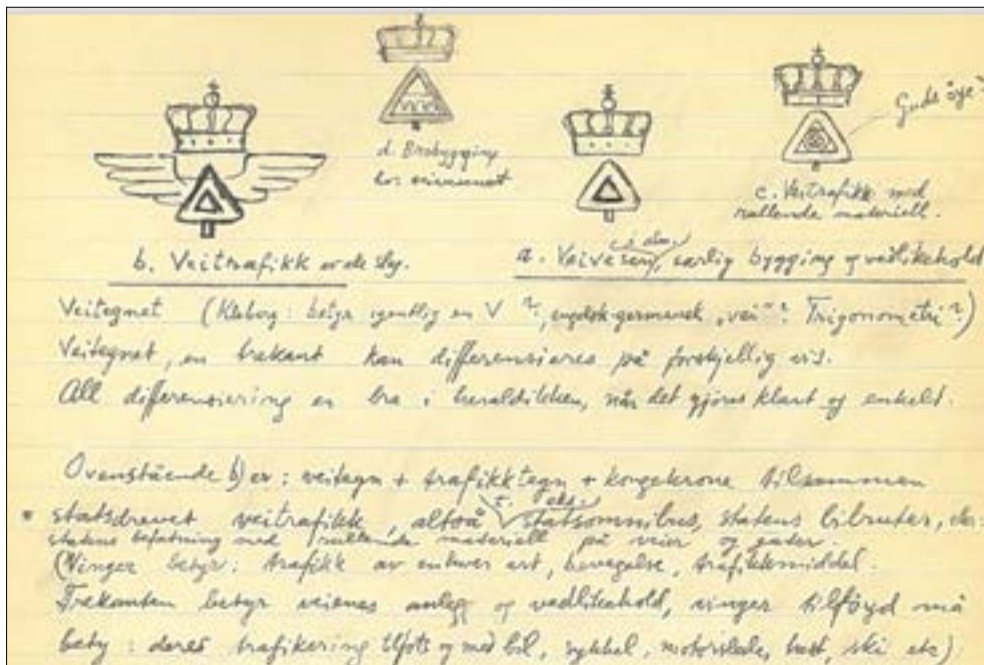 d. Brobygging
hos veivesenet
Guds øye?
c. Veitrafikk med
rullende materiell.
b. Veitrafikk er de sky.
i alm.
a. Veivesen, særlig bygging og vedlikehold
Veitegnet (Kleborg: betyr egentlig en V ?, engelsk-germansk „vei“? Trigonometri?)
Veitegnet, en trekant kan differensieres på forskjellig vis.
All differensiering er bra i heraldikken, når det gjøres klart og enkelt.
Ovenstående b) er: veitegn + trafikktegn + kongekrone tilsammen
f. eks.
* statsdrevet veitrafikk, altså statsomnibus, statens bilruter, dvs:
statens befatning med rullende materiell på veier og gater.
(Vinger betyr: trafikk av enhver art, bevegelse, trafikkmiddel.
Trekanten betyr veienes anlegg og vedlikehold, vinger tilføyd må
bety: deres trafikering tilfots og med bil, sykkel, motorslede, hest, ski etc).